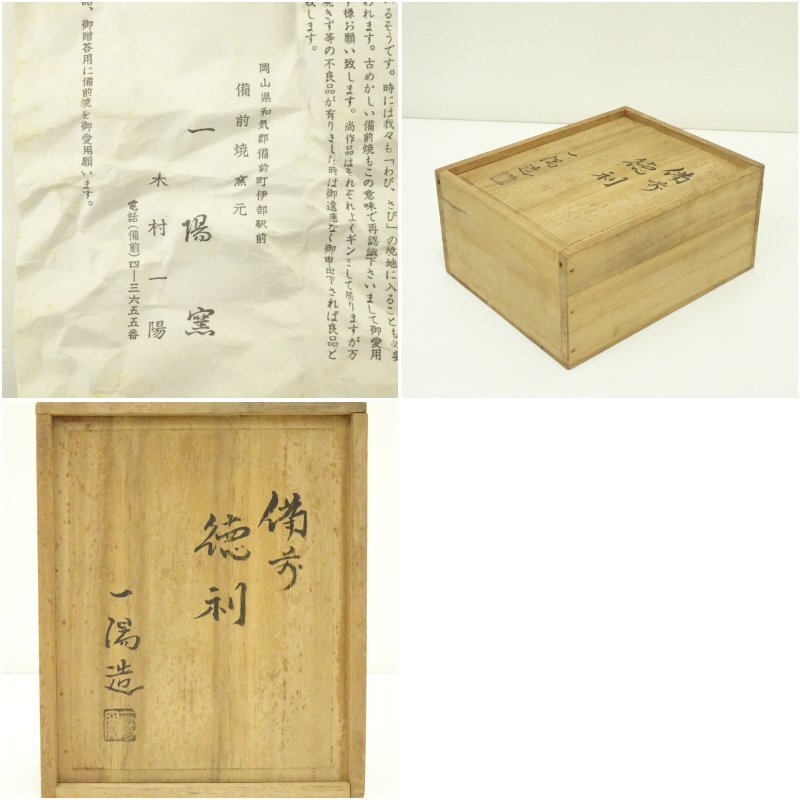 るそうです。時には我々も「わび、さび」の境地に入ることも必要
われます。古めかしい備前焼もこの意味で再認識下さいまして御愛用
す様お願い致します。尚作品はそれぞれよくギンミして居りますが万
焼きず等の不良品が有りました時は御遠慮なく御申出下されば良品と
致します。
岡山県和気郡備前町伊部駅前
備前焼窯元
一陽窯
木村一陽
電話(備前)四―三六五五番
御贈答用に備前焼を御愛用願います。
備前
徳利
一陽造
備前
徳利
一陽造